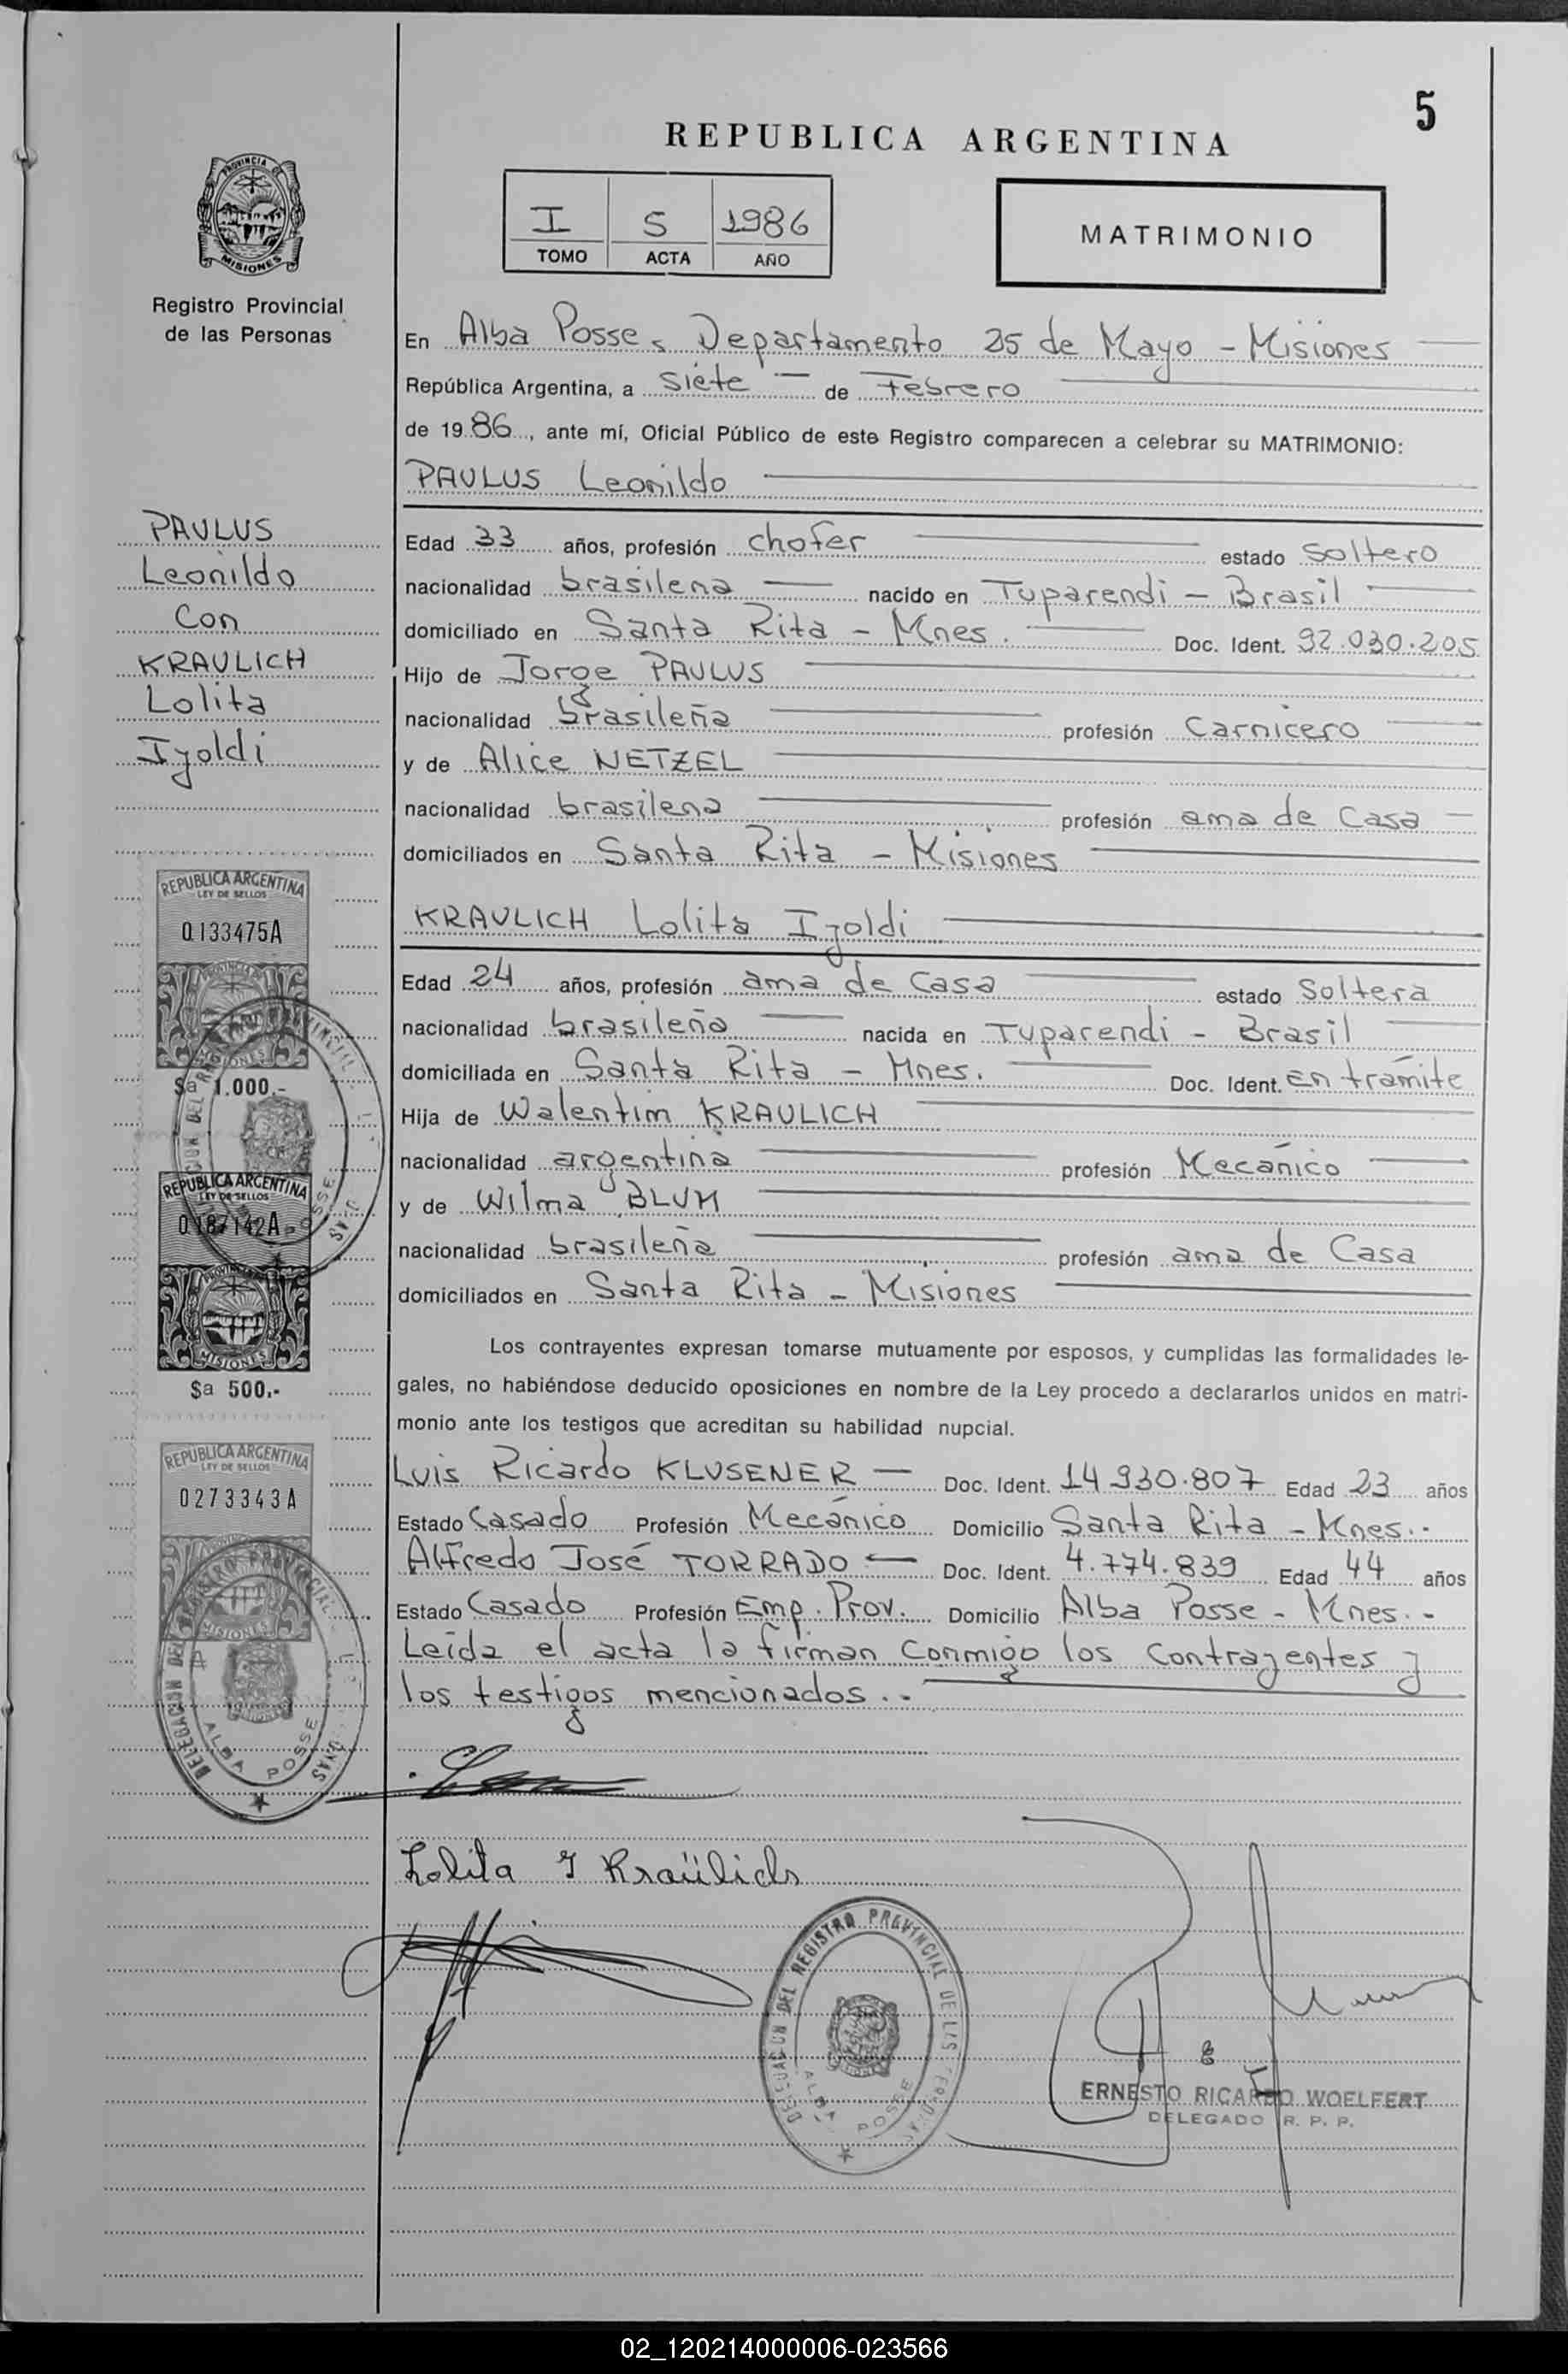 5
REPUBLICA ARGENTINA
I 5 1986
TOMO ACTA AÑO
MATRIMONIO
PROVINCIA DE
MISIONES
Registro Provincial
de las Personas
En Alba Posse, Departamento 25 de Mayo - Misiones
República Argentina, a siete de Febrero
de 1986, ante mí, Oficial Público de este Registro comparecen a celebrar su MATRIMONIO:
PAULUS Leonildo
PAULUS
Leonildo
Con
KRAULICH
Lolita
Izoldi
Edad 33 años, profesión chofer estado soltero
nacionalidad brasilena nacido en Tuparendi - Brasil
domiciliado en Santa Rita - Mnes. Doc. Ident. 92.030.205
Hijo de Jorge PAULUS
nacionalidad brasileña profesión Carnicero
y de Alice NETZEL
nacionalidad brasilena profesión ama de Casa
domiciliados en Santa Rita - Misiones
KRAULICH Lolita Izoldi
Edad 24 años, profesión ama de Casa estado Soltera
nacionalidad brasileña nacida en Tuparendi - Brasil
domiciliada en Santa Rita - Mnes. Doc. Ident. En trámite
Hija de Walentim KRAULICH
nacionalidad argentina profesión Mecánico
y de Wilma BLUM
nacionalidad brasileña profesión ama de Casa
domiciliados en Santa Rita - Misiones
Los contrayentes expresan tomarse mutuamente por esposos, y cumplidas las formalidades le-
gales, no habiéndose deducido oposiciones en nombre de la Ley procedo a declararlos unidos en matri-
monio ante los testigos que acreditan su habilidad nupcial.
Luis Ricardo KLUSENER - Doc. Ident. 14.930.807 Edad 23 años
Estado Casado Profesión Mecánico Domicilio Santa Rita - Mnes.-
Alfredo José TORRADO - Doc. Ident. 4.774.839 Edad 44 años
Estado Casado Profesión Emp. Prov. Domicilio Alba Posse - Mnes.-
Leída el acta la firman conmigo los Contrayentes y
los testigos mencionados.-
REPUBLICA ARGENTINA
LEY DE SELLOS
0133475A
MISIONES
$a 1.000.-
REPUBLICA ARGENTINA
LEY DE SELLOS
0187142A
MISIONES
$a 500,-
REPUBLICA ARGENTINA
LEY DE SELLOS
0273343A
MISIONES
ALBA POSSE
Lolita I Kraülich
DELEGACION DEL REGISTRO PROVINCIAL DE LAS
ALBA POSSE
ERNESTO RICARDO WOELFERT
DELEGADO R. P. P.
02_120214000006-023566